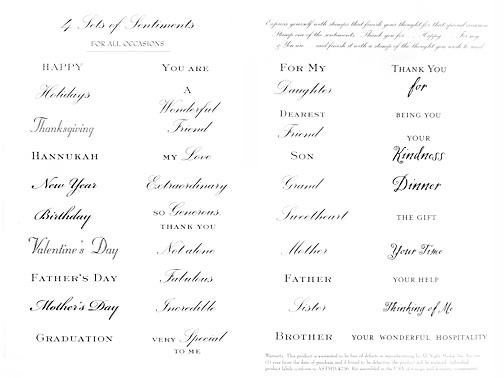 4 Sets of Sentiments
FOR ALL OCCASIONS
HAPPY
Holidays
Thanksgiving
HANNUKAH
New Year
Birthday
Valentine's Day
FATHER'S DAY
Mother's Day
GRADUATION
YOU ARE
A
Wonderful
Friend
MY Love
Extraordinary
SO Generous
THANK YOU
Not alone
Fabulous
Incredible
VERY Special
TO ME
Express yourself with stamps that finish your thought for that special occasion
Stamp one of the sentiments Thank you for Happy For my
You are and finish it with a stamp of the thought you wish to send
FOR MY
Daughter
DEAREST
Friend
SON
Grand
Sweetheart
Mother
FATHER
Sister
BROTHER
THANK YOU
for
BEING YOU
YOUR
Kindness
Dinner
THE GIFT
Your Time
YOUR HELP
Thinking of Me
YOUR WONDERFUL HOSPITALITY
Warranty. This product is warranted to be free of defects in manufacturing by
year from the date of purchase and if found to be defective, the product will be replaced.
product labels conform to